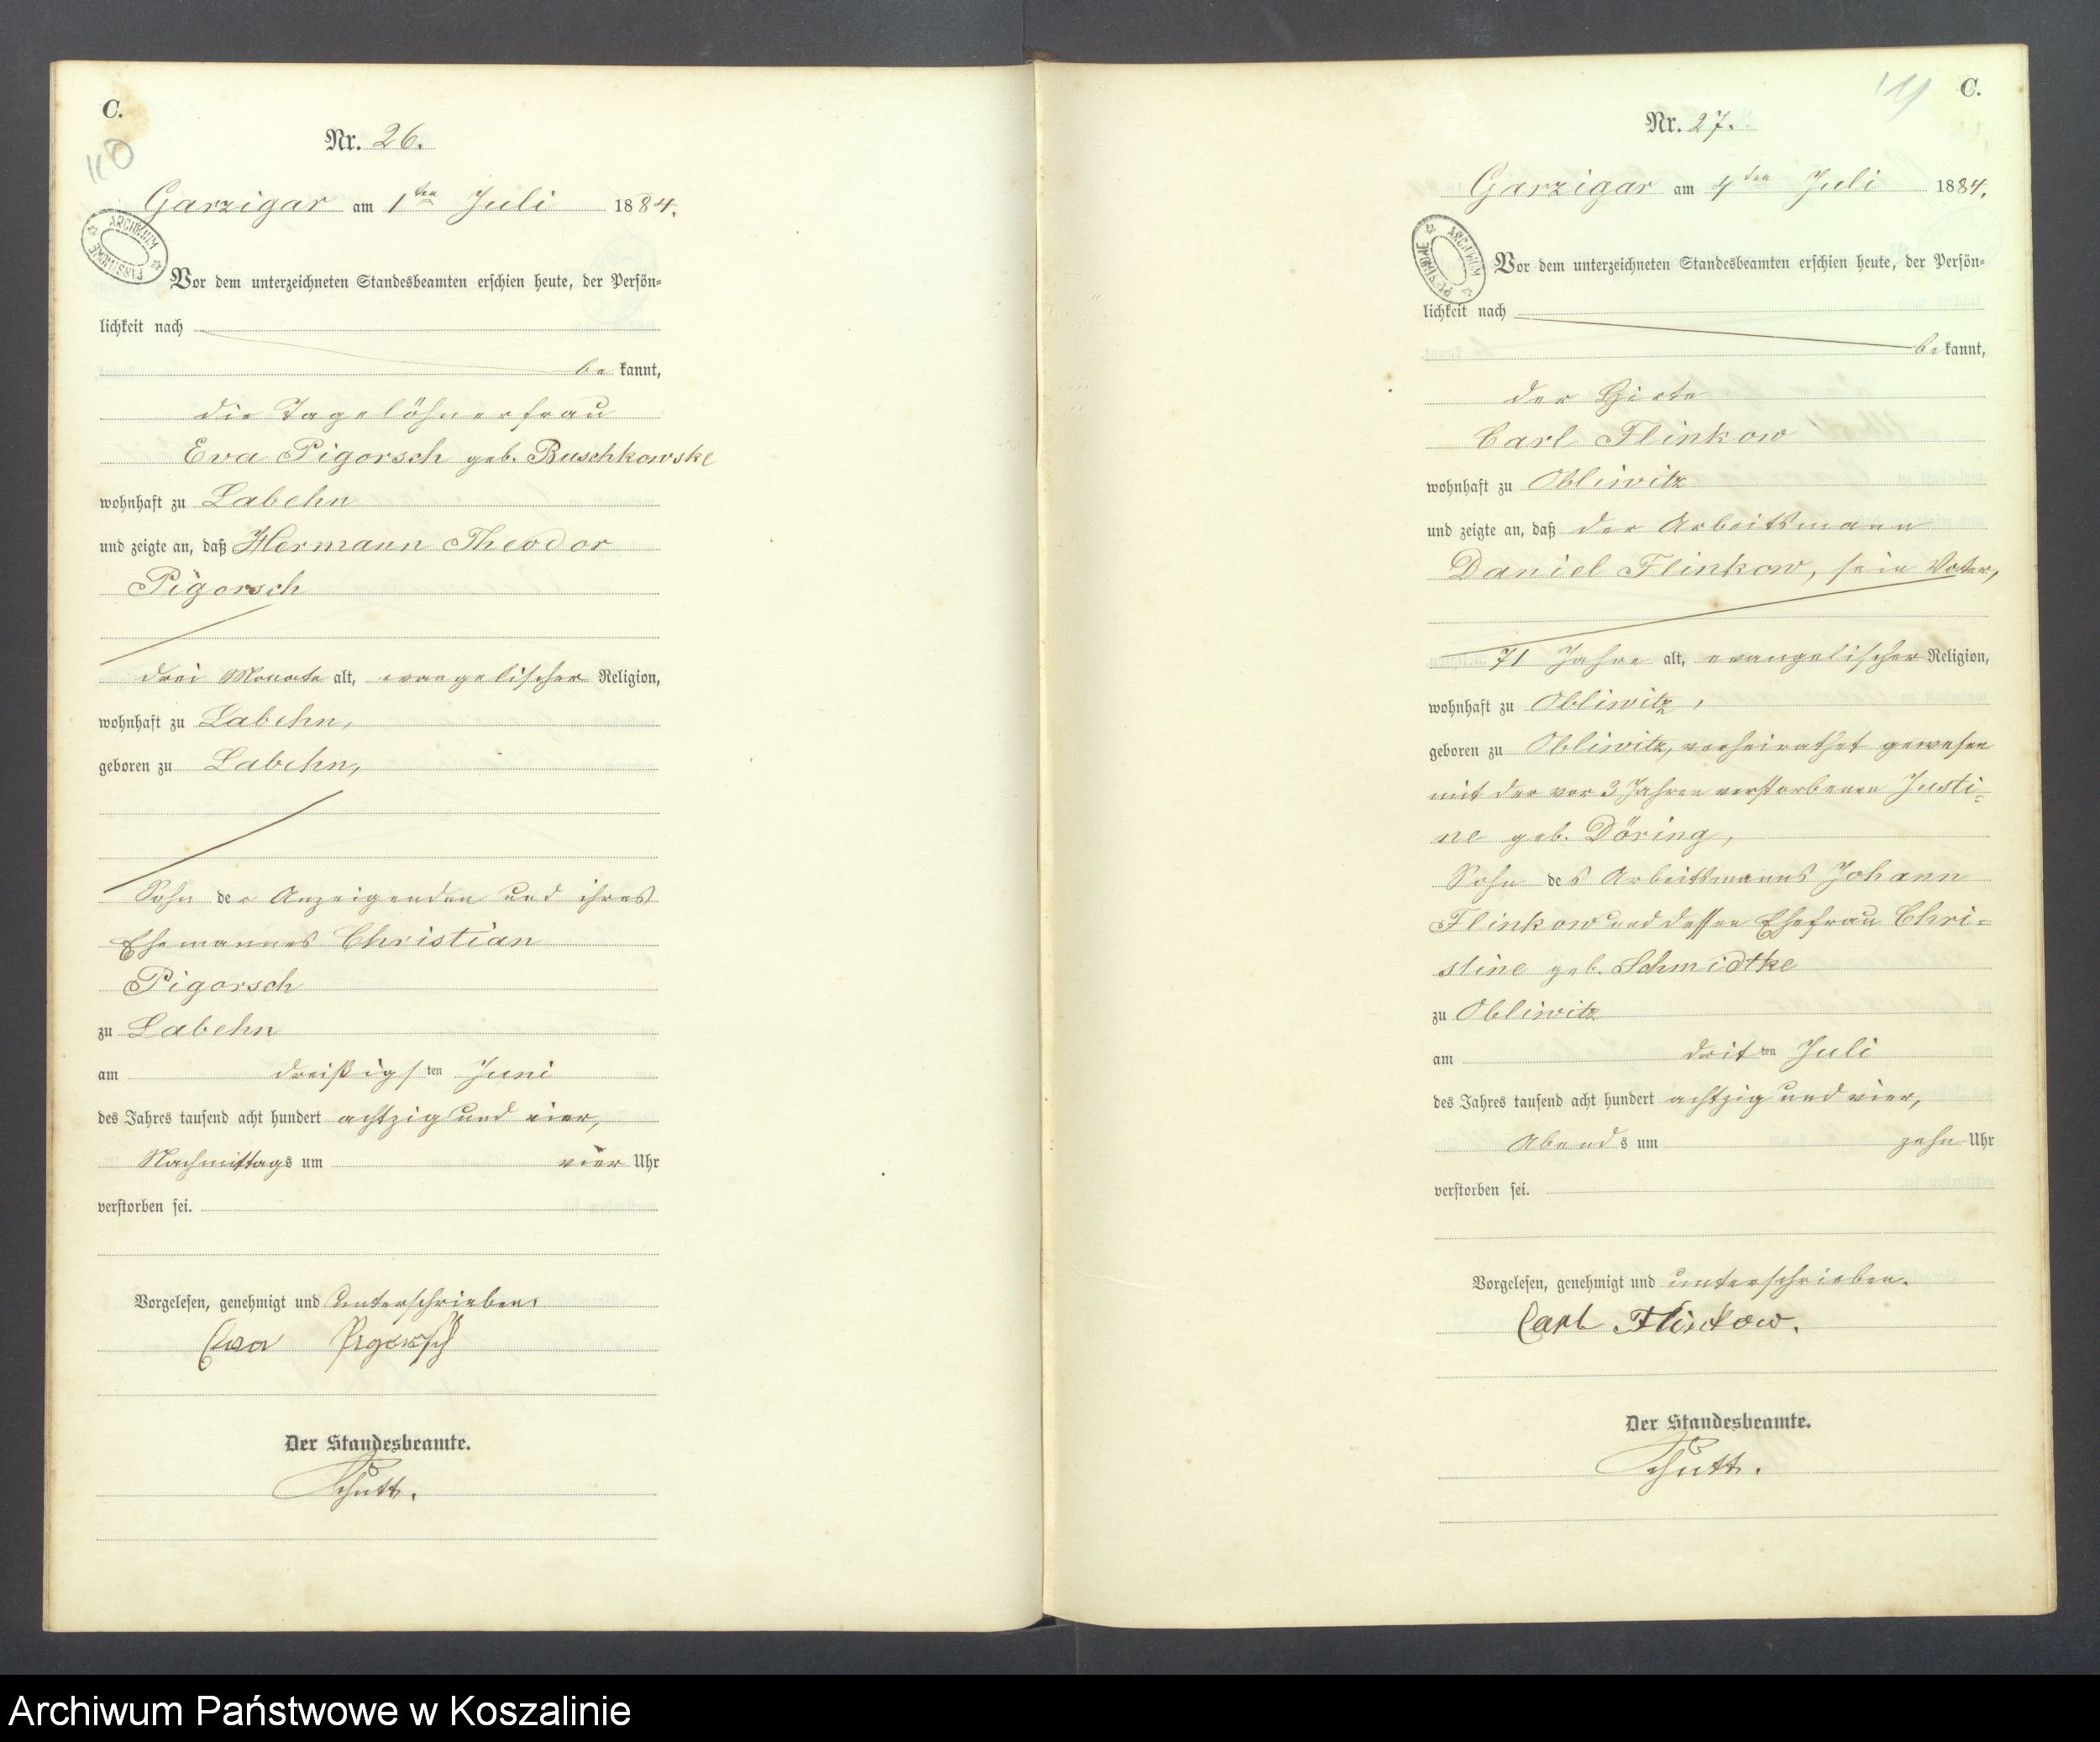 C.
110
Nr. 26.
Garzigar am 1ten Juli 1884.
ARCHIWUM PAŃSTWOWE
Vor dem unterzeichneten Standesbeamten erschien heute, der Persön=
lichkeit nach
be kannt,
die Tagelöhnerfrau
Eva Pigorsch geb. Buschkowske
wohnhaft zu Labehn
und zeigte an, daß Hermann Theodor
Pigorsch
drei Monate alt, evangelischer Religion,
wohnhaft zu Labehn,
geboren zu Labehn,
Sohn der Anzeigenden und ihres
Ehemannes Christian
Pigorsch
zu Labehn
am dreißigsten Juni
des Jahres tausend acht hundert achtzig und vier,
Nachmittags um vier Uhr
verstorben sei.
Vorgelesen, genehmigt und unterschrieben.
Eva Pigorsch
Der Standesbeamte.
Schütt.
C.
Nr. 27.
Garzigar am 4ten Juli 1884.
ARCHIWUM PAŃSTWOWE
Vor dem unterzeichneten Standesbeamten erschien heute, der Persön=
lichkeit nach
be kannt,
der Hirte
Carl Flinkow
wohnhaft zu Obliwitz
und zeigte an, daß der Arbeitsmann
Daniel Flinkow, sein Vater,
71 Jahre alt, evangelischer Religion,
wohnhaft zu Obliwitz,
geboren zu Obliwitz, verheirathet gewesen
mit der vor 3 Jahren verstorbenen Justi=
ne geb. Döring,
Sohn des Arbeitsmanns Johann
Flinkow und dessen Ehefrau Chri=
stine geb. Schmidtke
zu Obliwitz
am dritten Juli
des Jahres tausend acht hundert achtzig und vier,
Abends um zehn Uhr
verstorben sei.
Vorgelesen, genehmigt und unterschrieben.
Carl Flinkow.
Der Standesbeamte.
Schütt.
Archiwum Państwowe w Koszalinie